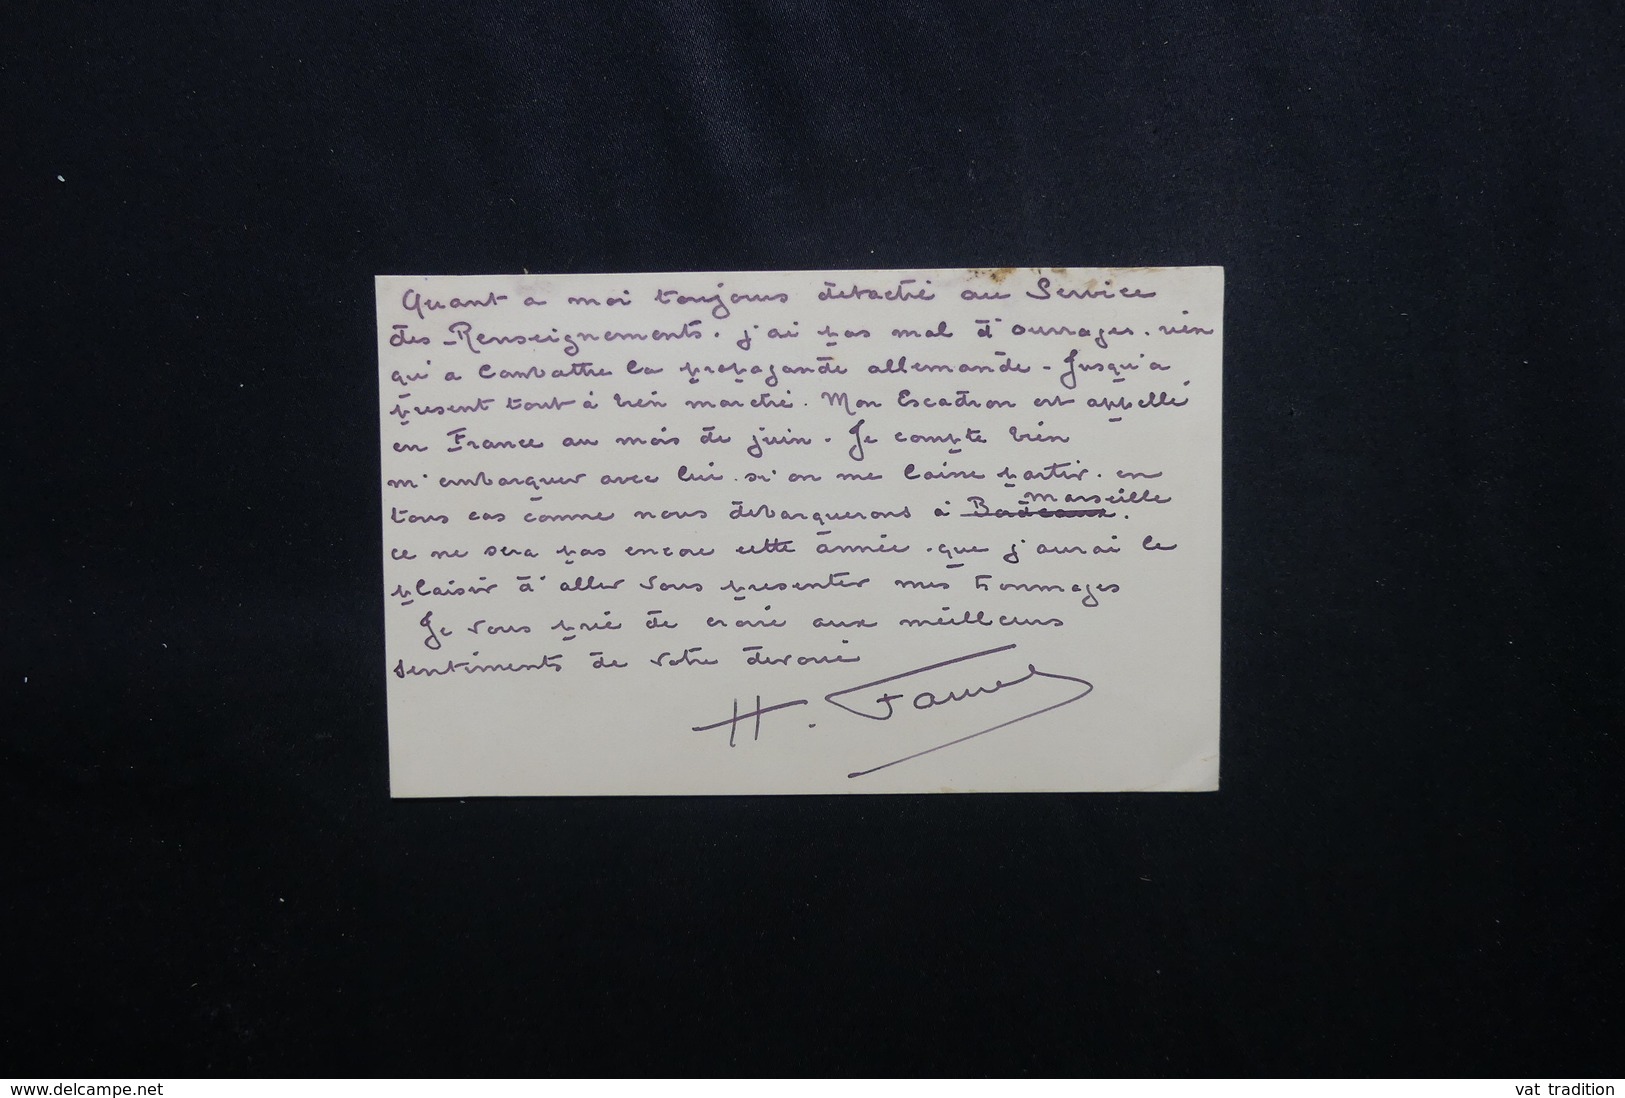 Quant a moi toujours detaché au Service
des Renseignements. j'ai pas mal d'ouvrages. rien
qu'a combattre la propagande allemande - Jusqu'a
present tout à bien marché. Mon Escadron est appellé
en France au mois de juin. Je compte bien
m'embarquer avec lui. si on me laisse partir. en
tous cas comme nous debarquerons à Bordeaux Marseille.
ce ne sera pas encore cette année. que j'aurai le
plaisir d'aller vous presenter mes hommages
Je vous prie de croire aux meilleurs
sentiments de votre devoué
H.
www.delcampe.net
vat tradition